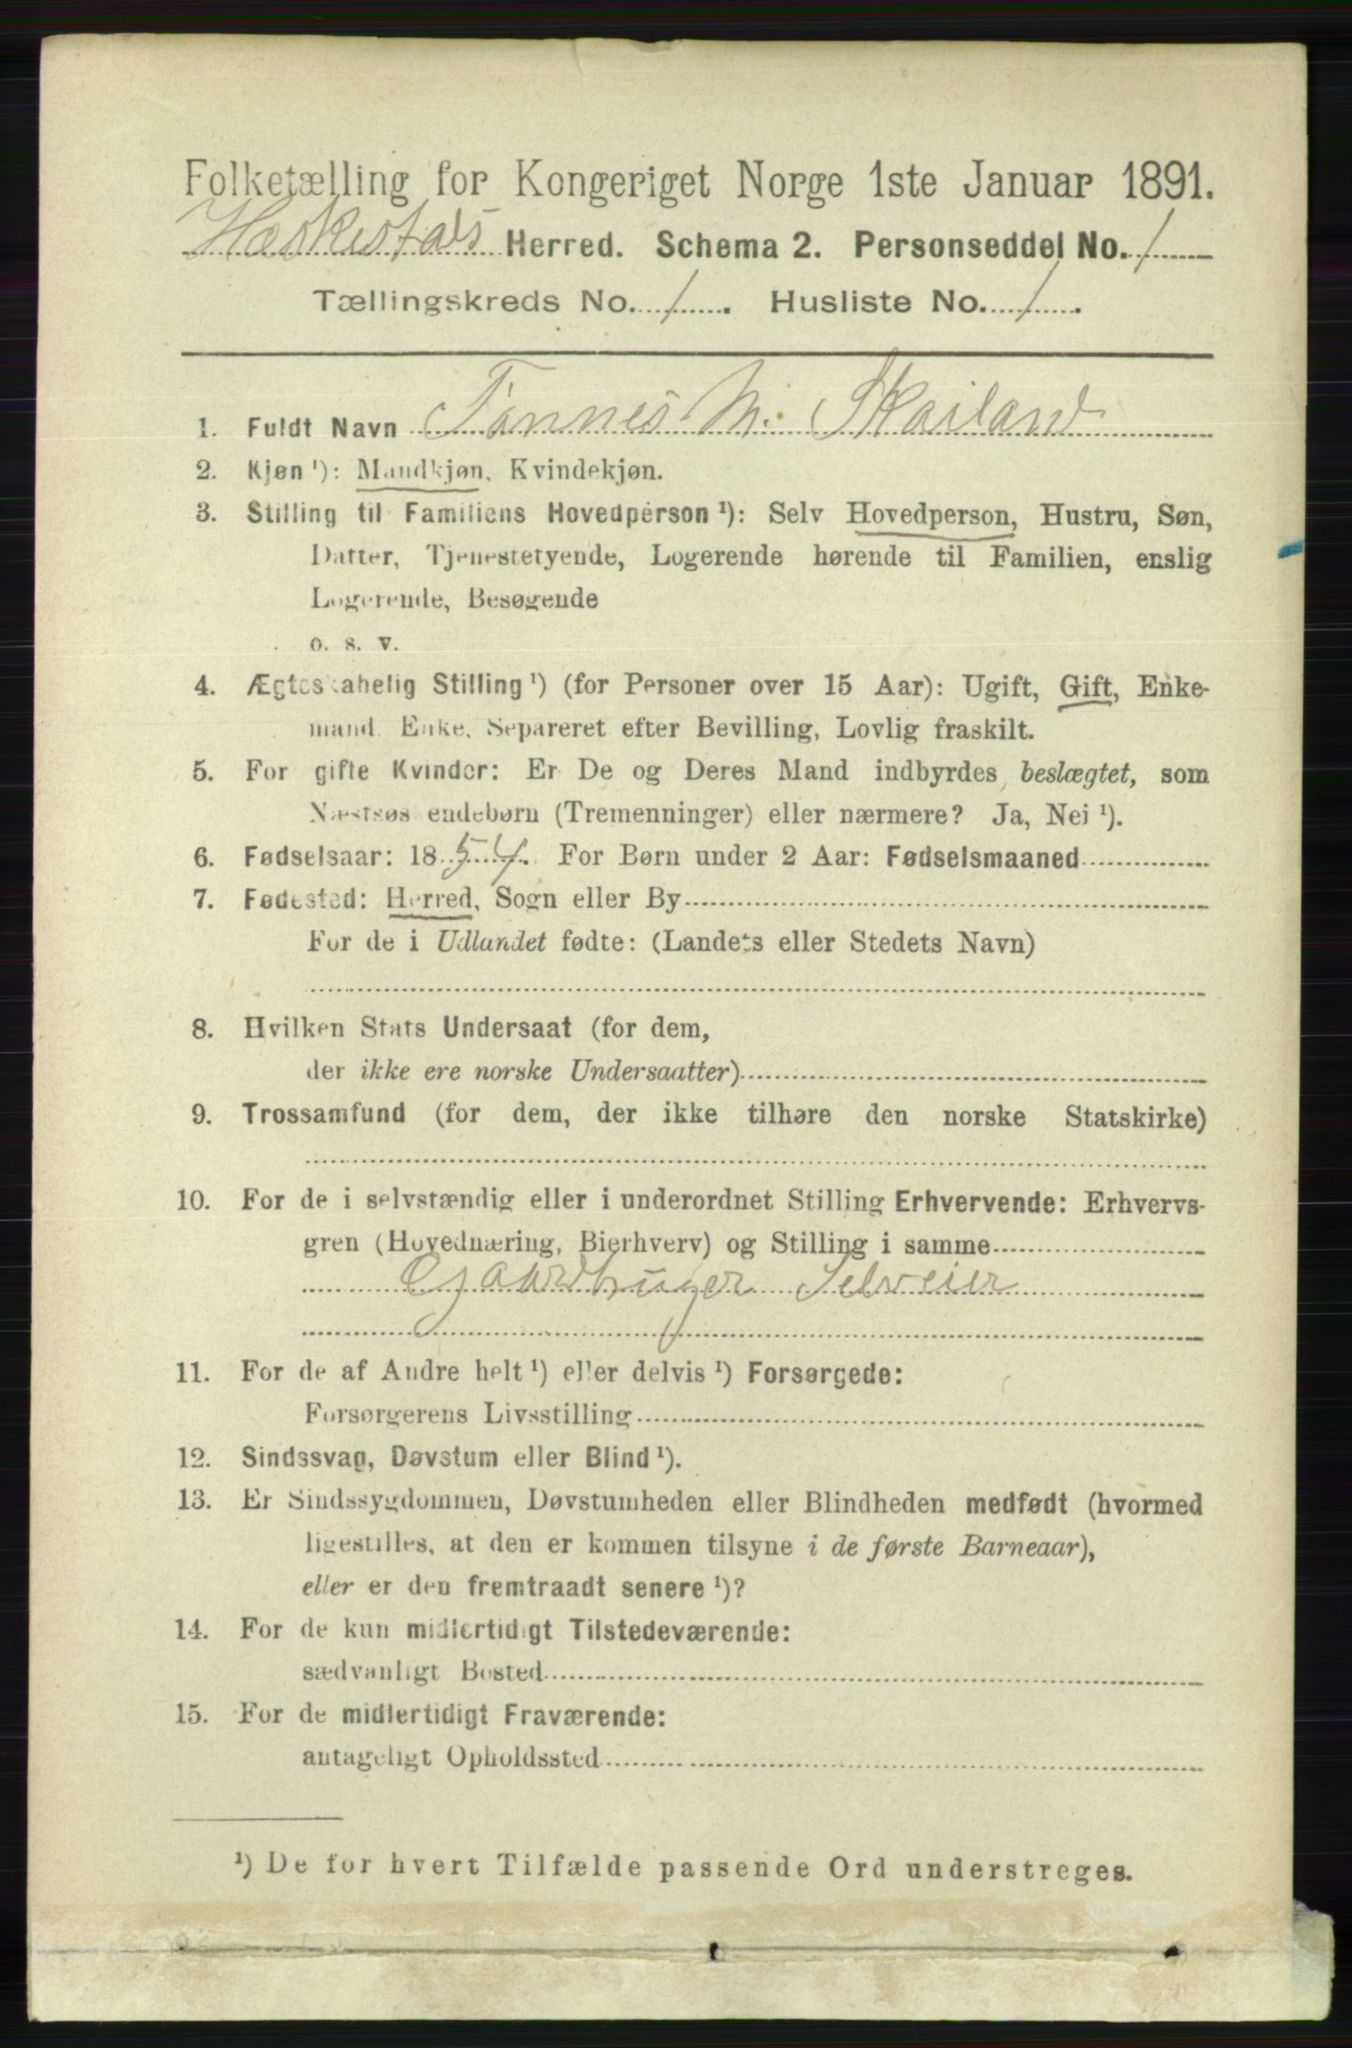 Folketælling for Kongeriget Norge 1ste Januar 1891.
Heskestads Herred. Schema 2. Personseddel No. 1
Tællingskreds No. 1. Husliste No. 1.
1. Fuldt Navn Tønnes M. Skailand
2. Kjøn ¹): Mandkjøn, Kvindekjøn.
3. Stilling til Familiens Hovedperson ¹): Selv Hovedperson, Hustru, Søn,
Datter, Tjenestetyende, Logerende hørende til Familien, enslig
Logerende, Besøgende
o. s. v.
4. Ægteskabelig Stilling ¹) (for Personer over 15 Aar): Ugift, Gift, Enke-
mand, Enke, Separeret efter Bevilling, Lovlig fraskilt.
5. For gifte Kvinder: Er De og Deres Mand indbyrdes beslægtet, som
Næstsøskendebørn (Tremenninger) eller nærmere? Ja, Nei ¹).
6. Fødselsaar: 1854. For Børn under 2 Aar: Fødselsmaaned
7. Fødested: Herred, Sogn eller By
For de i Udlandet fødte: (Landets eller Stedets Navn)
8. Hvilken Stats Undersaat (for dem,
der ikke ere norske Undersaatter)
9. Trossamfund (for dem, der ikke tilhøre den norske Statskirke)
10. For de i selvstændig eller i underordnet Stilling Erhvervende: Erhvervs-
gren (Hovednæring, Bierhverv) og Stilling i samme
Gaardbruger Selveier
11. For de af Andre helt ¹) eller delvis ¹) Forsørgede:
Forsørgerens Livsstilling
12. Sindssvag, Døvstum eller Blind ¹).
13. Er Sindssygdommen, Døvstumheden eller Blindheden medfødt (hvormed
ligestilles, at den er kommen tilsyne i de første Barneaar),
eller er den fremtraadt senere ¹)?
14. For de kun midlertidigt Tilstedeværende:
sædvanligt Bosted
15. For de midlertidigt Fraværende:
antageligt Opholdssted
¹) De for hvert Tilfælde passende Ord understreges.